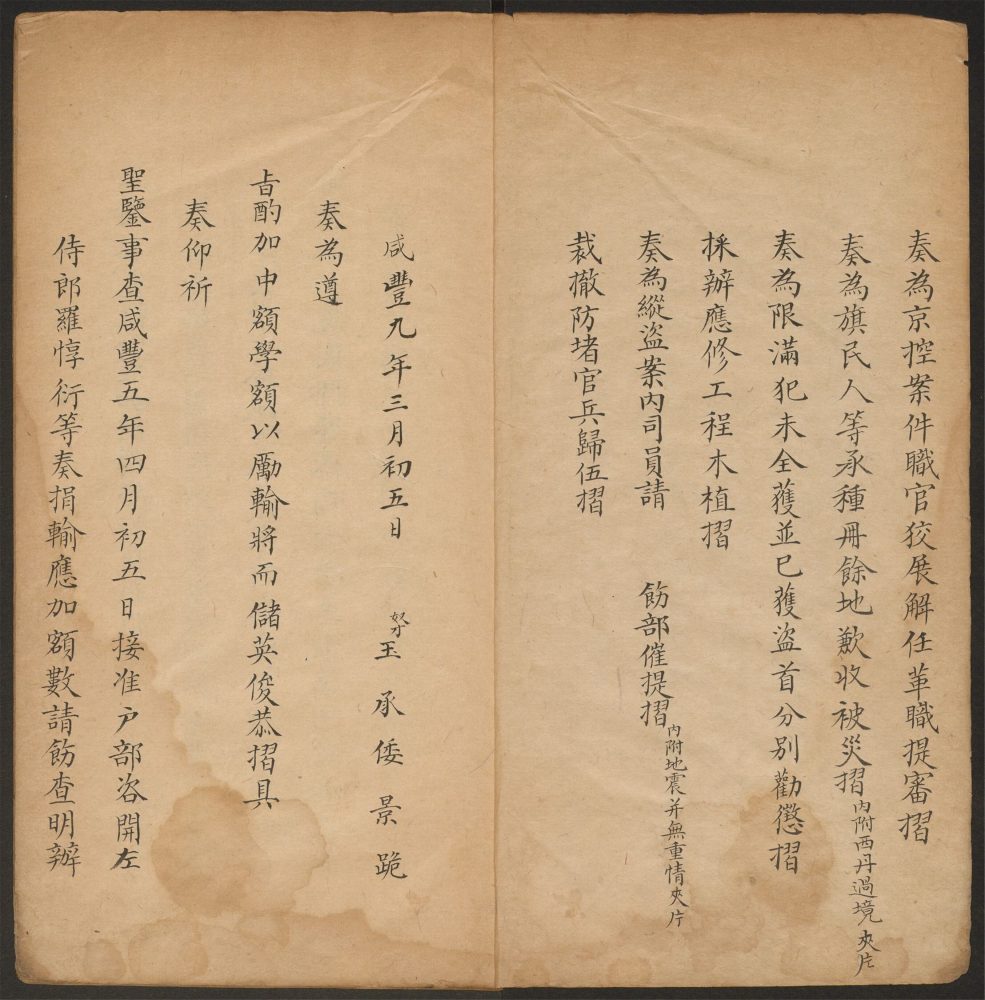 奏為京控案件職官狡展解任革職提審摺
奏為旗民人等承種冊餘地歉收被災摺內附西丹過境夾片
奏為限滿犯未全獲並已獲盜首分別勸懲摺
採辦應修工程木植摺
奏為縱盜案內司員請 飭部催提摺內附地震并無重情夾片
裁撤防堵官兵歸伍摺
咸豐九年三月初五日 奴才玉 承 倭 景 跪
奏為遵
旨酌加中額學額以勵輸將而儲英俊恭摺具
奏仰祈
聖鑒事查咸豐五年四月初五日接准戶部咨開左
侍郎羅惇衍等奏捐輸應加額數請飭查明辦